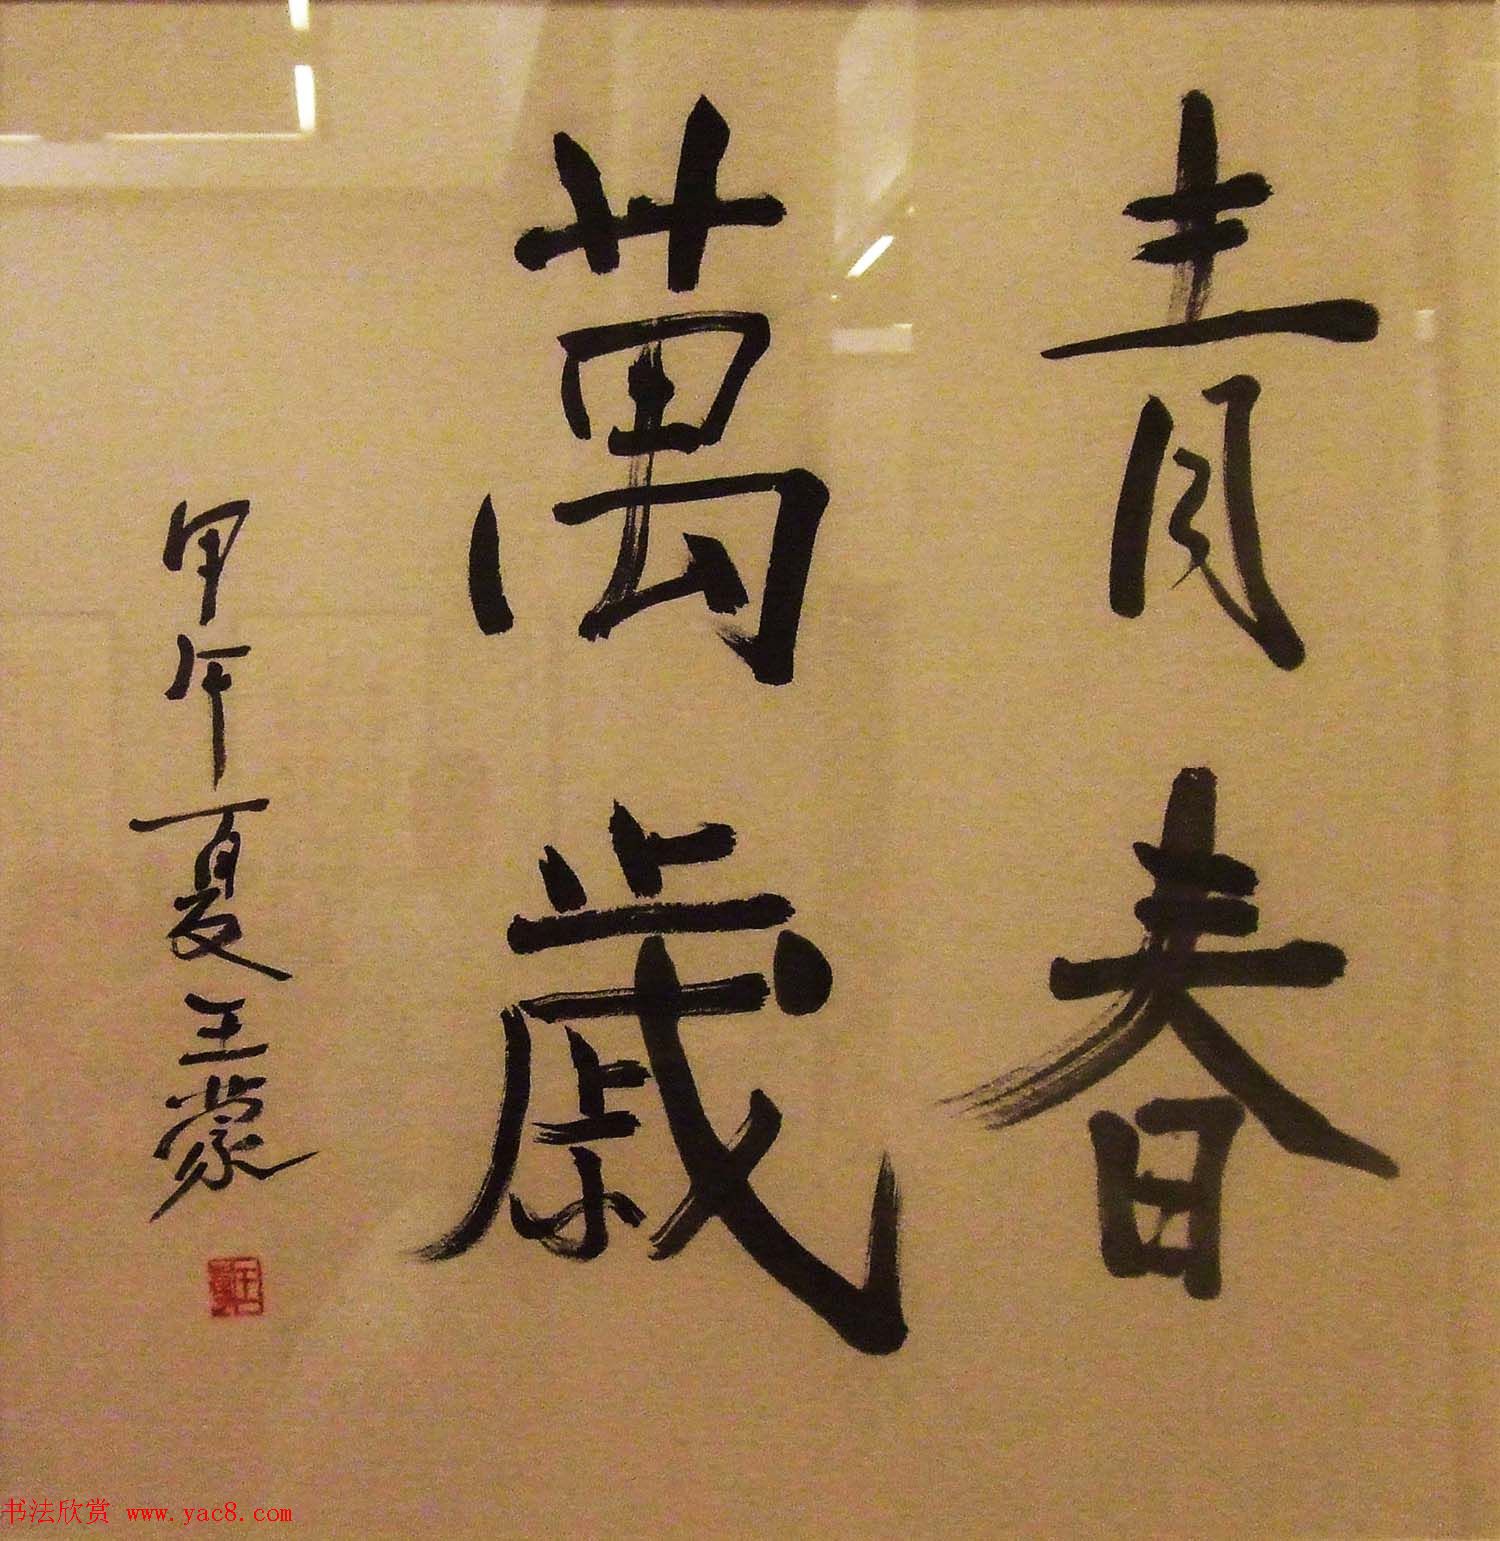 青春
萬歲
甲午夏王蒙
书法欣赏 www.yac8.com